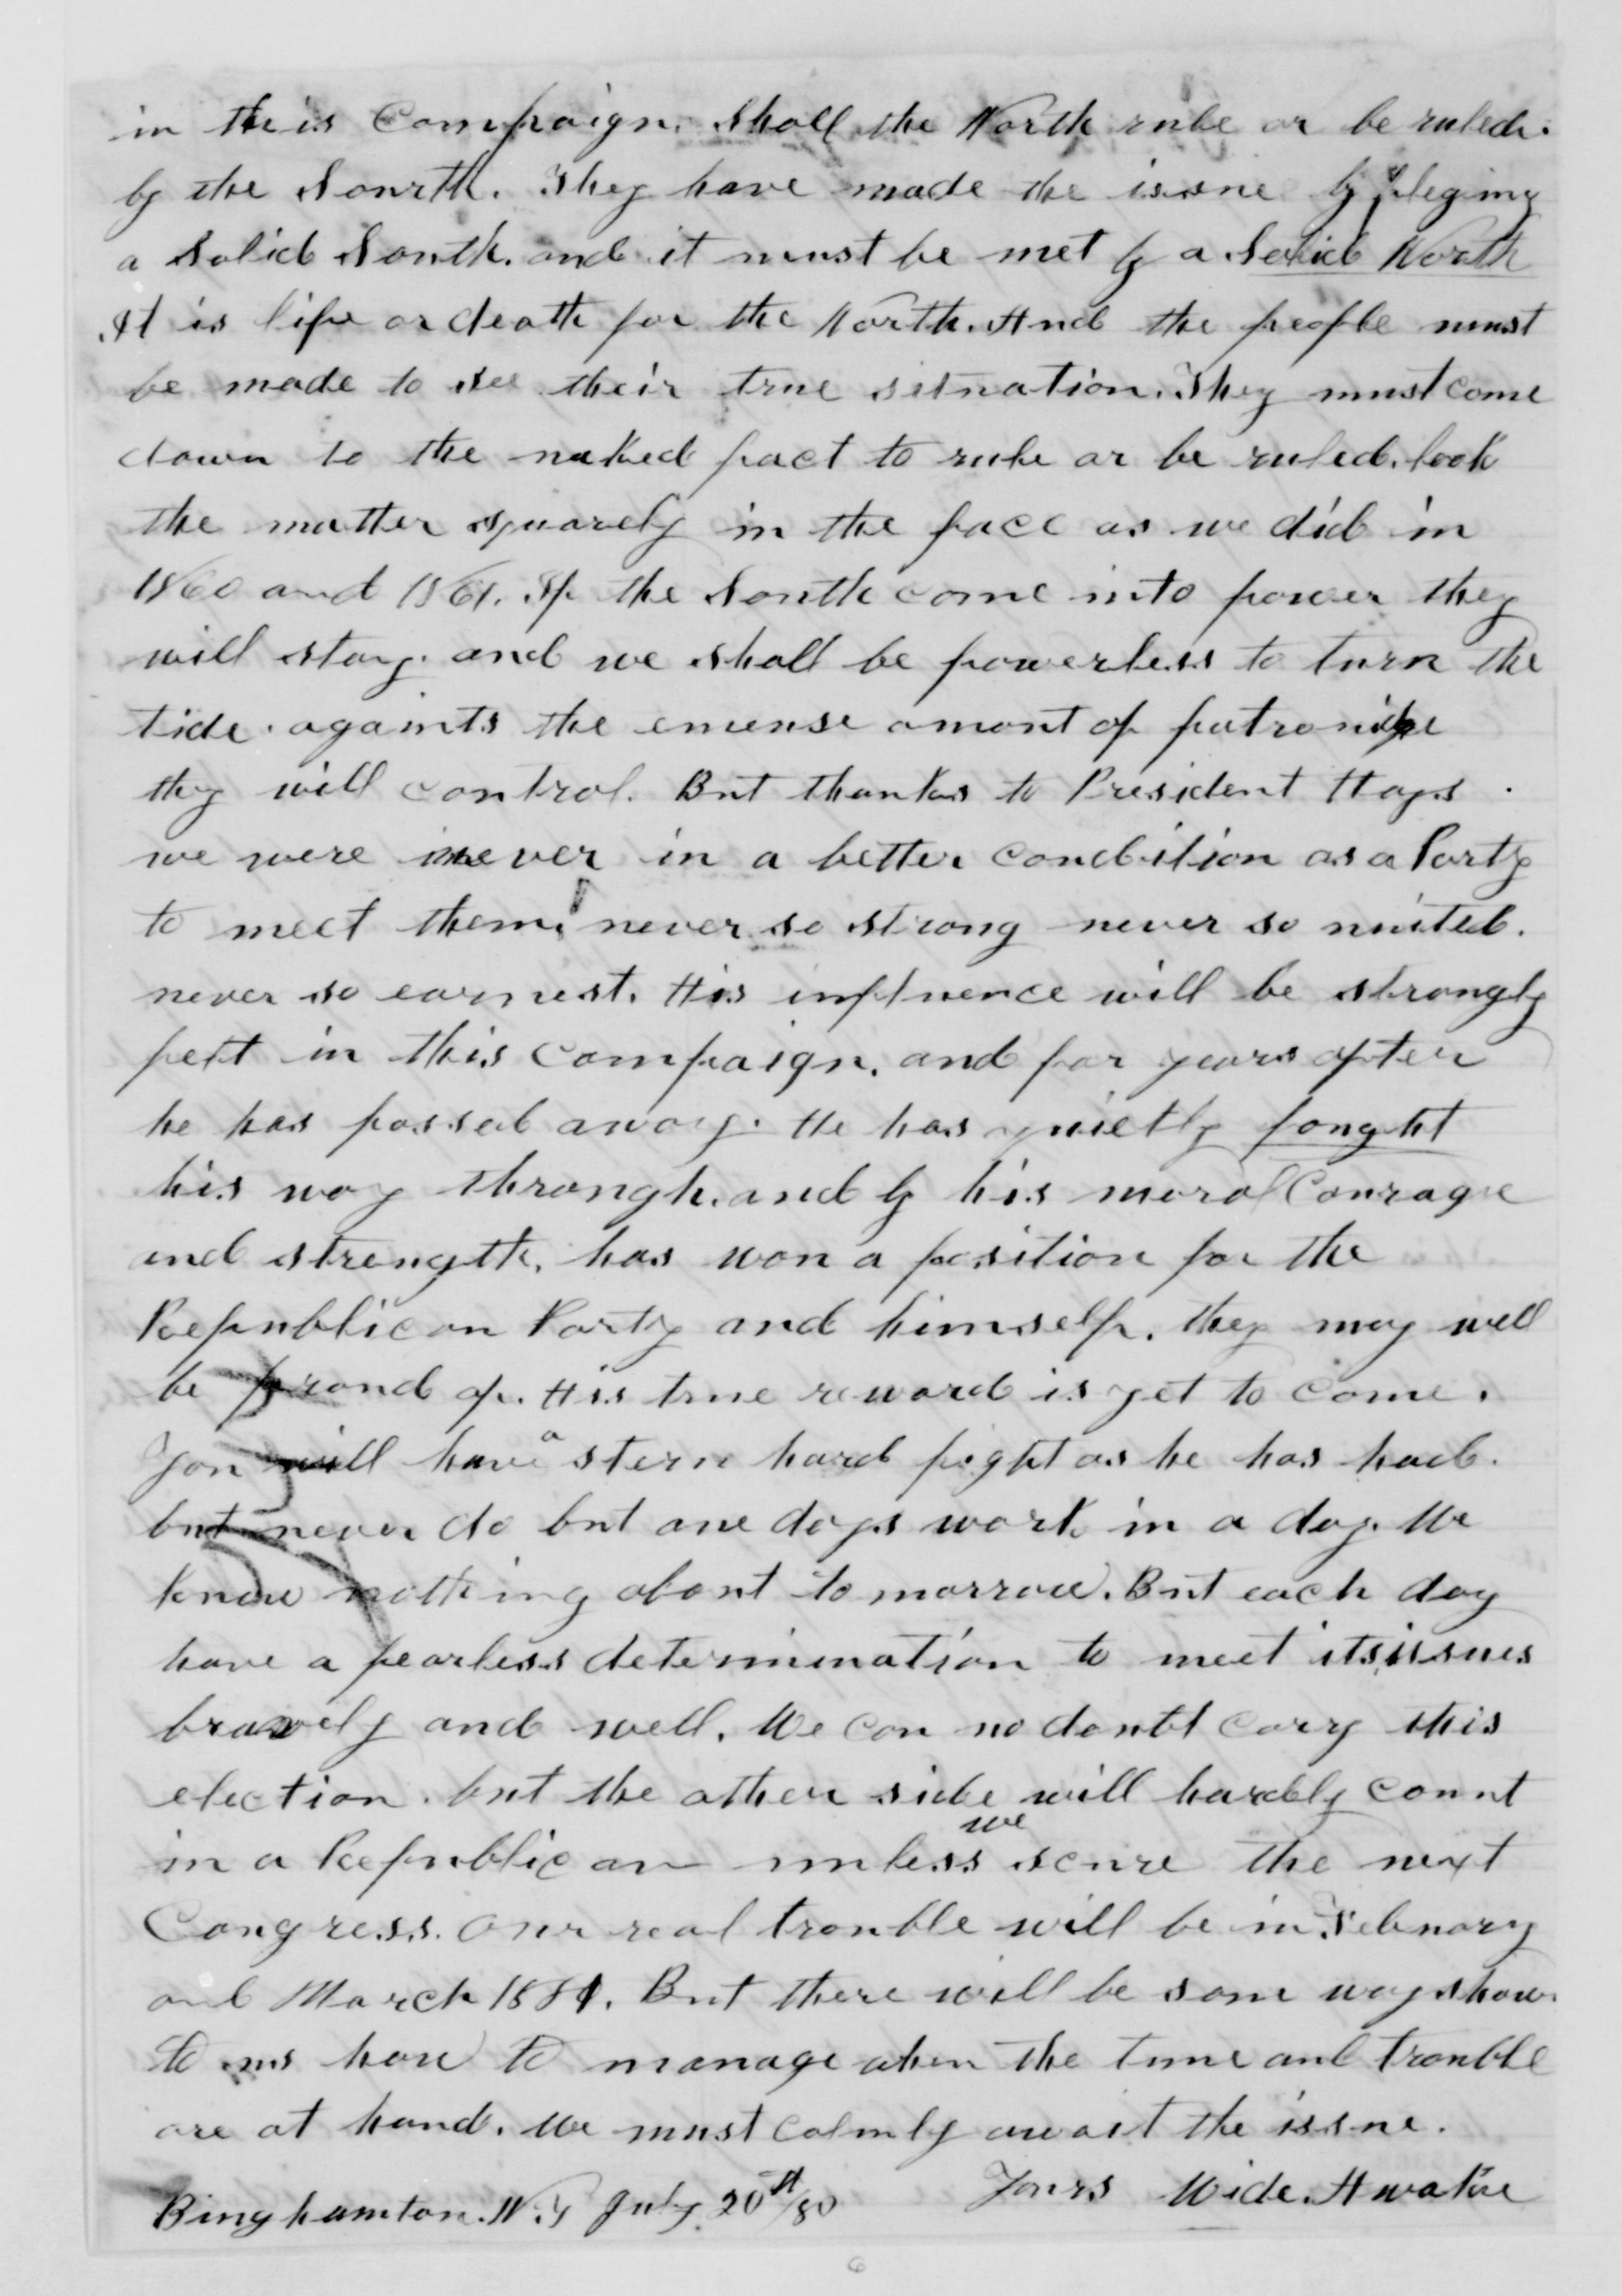 in this Campaign. Shall the North rule or be ruled.
by the Sourth. They have made the issue by pleging
a Solid South. and it must be met by a Solid North
It is life or death for the North. And the people must
be made to see their true situation. They must come
down to the naked fact to rule or be ruled. look
the matter squarely in the face as we did in
1860 and 1861. If the South come into power they
will stay. and we shall be powerless to turn the
tide. againts the emense amont of patronige
they will control. But thanks to President Hays.
we were never in a better condition as a Party
to meet them. never so strong never so united.
never so earnest. His influence will be strongly
felt in this campaign. and for years after
he has passed away. He has quietly fought
his way through. and by his moral Courage
and strength. has won a position for the
Republican Party and himself. they may well
be proud of. His true reward is yet to come.
You will have a stern hard fight as he has had.
but never do but one days work in a day. We
know nothing about to morrow. But each day
have a fearless determination to meet its issues
bravely and well. We can no doubt cary this
election. but the other side will hardly count
in a Republican unless we scure the next
Congress. Our real trouble will be in February
and March 1881. But there will be som way shown
to us how to manage when the time and trouble
are at hand. We must calmly await the issue.
Yours Wide. Awake
Binghamton. N.Y July. 20th/80
6